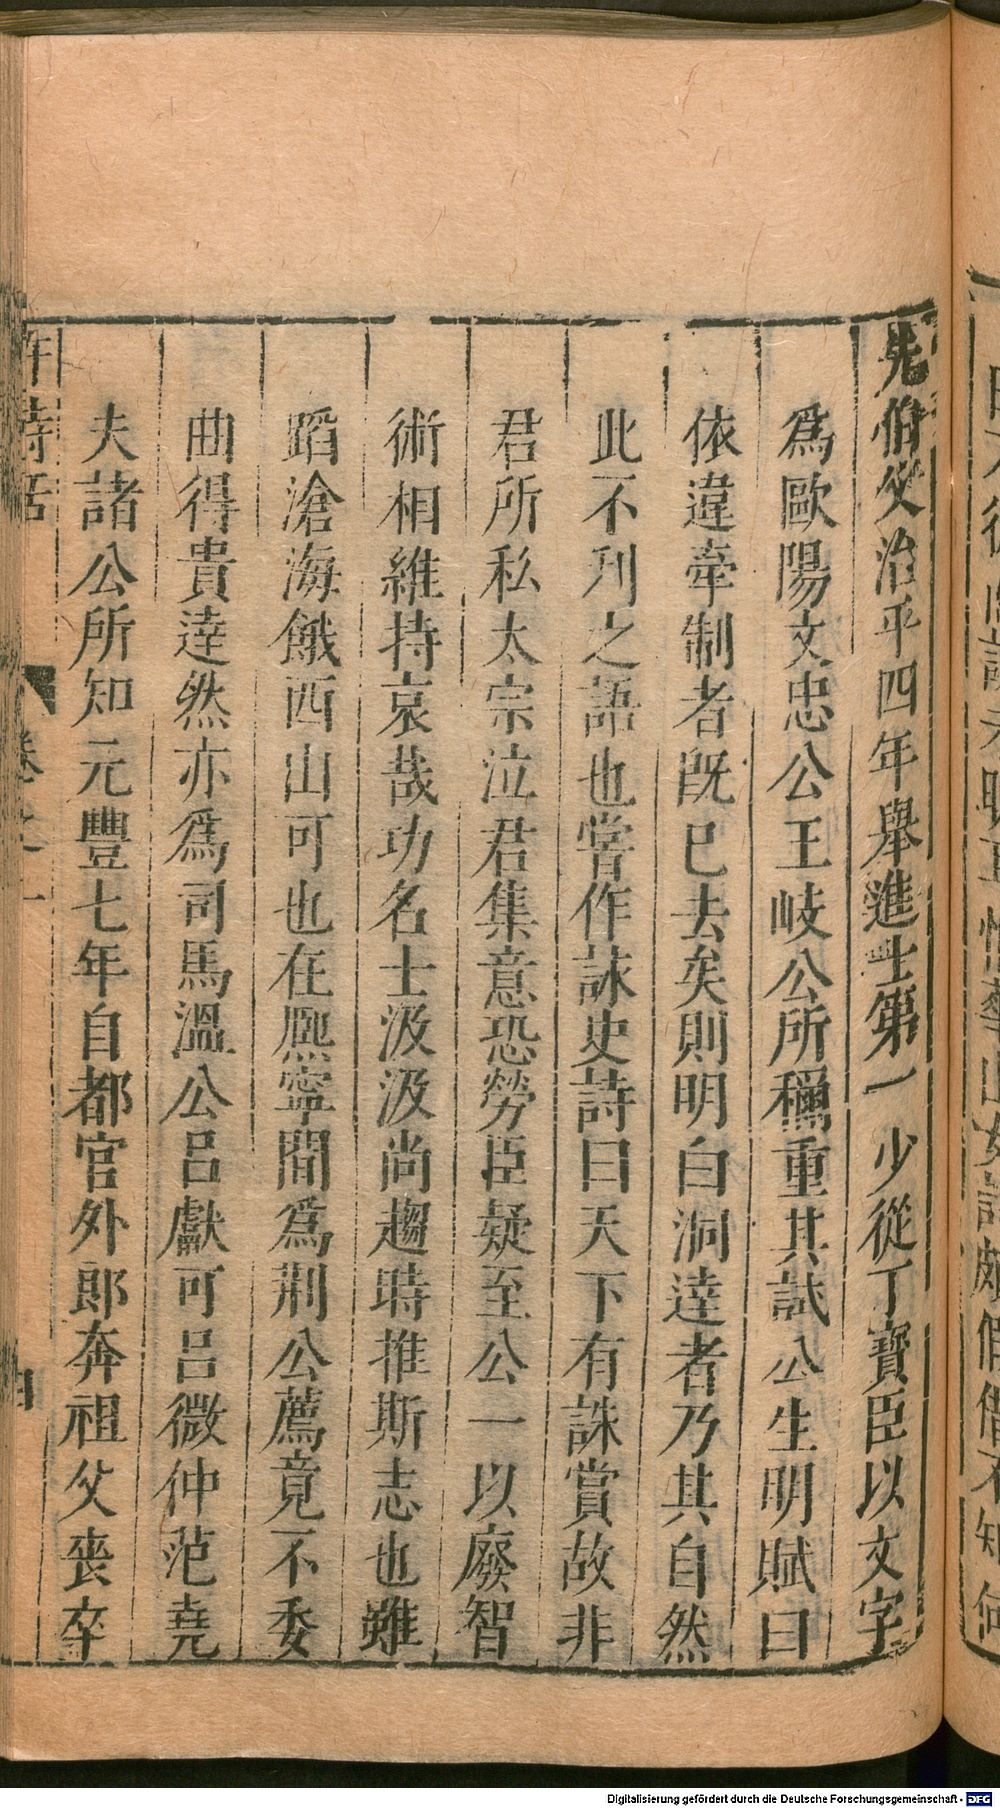 先伯父治平四年舉進士第一少從丁寶臣以文字
爲歐陽文忠公王岐公所稱重其試公生明賦曰
依違牽制者旣已去矣則明白洞達者乃其自然
此不刋之語也嘗作詠史詩曰天下有誅賞故非
君所私太宗泣君集意恐勞臣疑至公一以廢智
術相維持哀哉功名士汲汲尚趨時推斯志也雖
蹈滄海餓西山可也在熈寧間爲荆公薦竟不委
曲得貴達然亦爲司馬溫公呂獻可呂微仲范堯
夫諸公所知元豐七年自都官外郎奔祖父喪卒
許詩話
卷之一
Digitalisierung gefördert durch die Deutsche Forschungsgemeinschaft - DFG